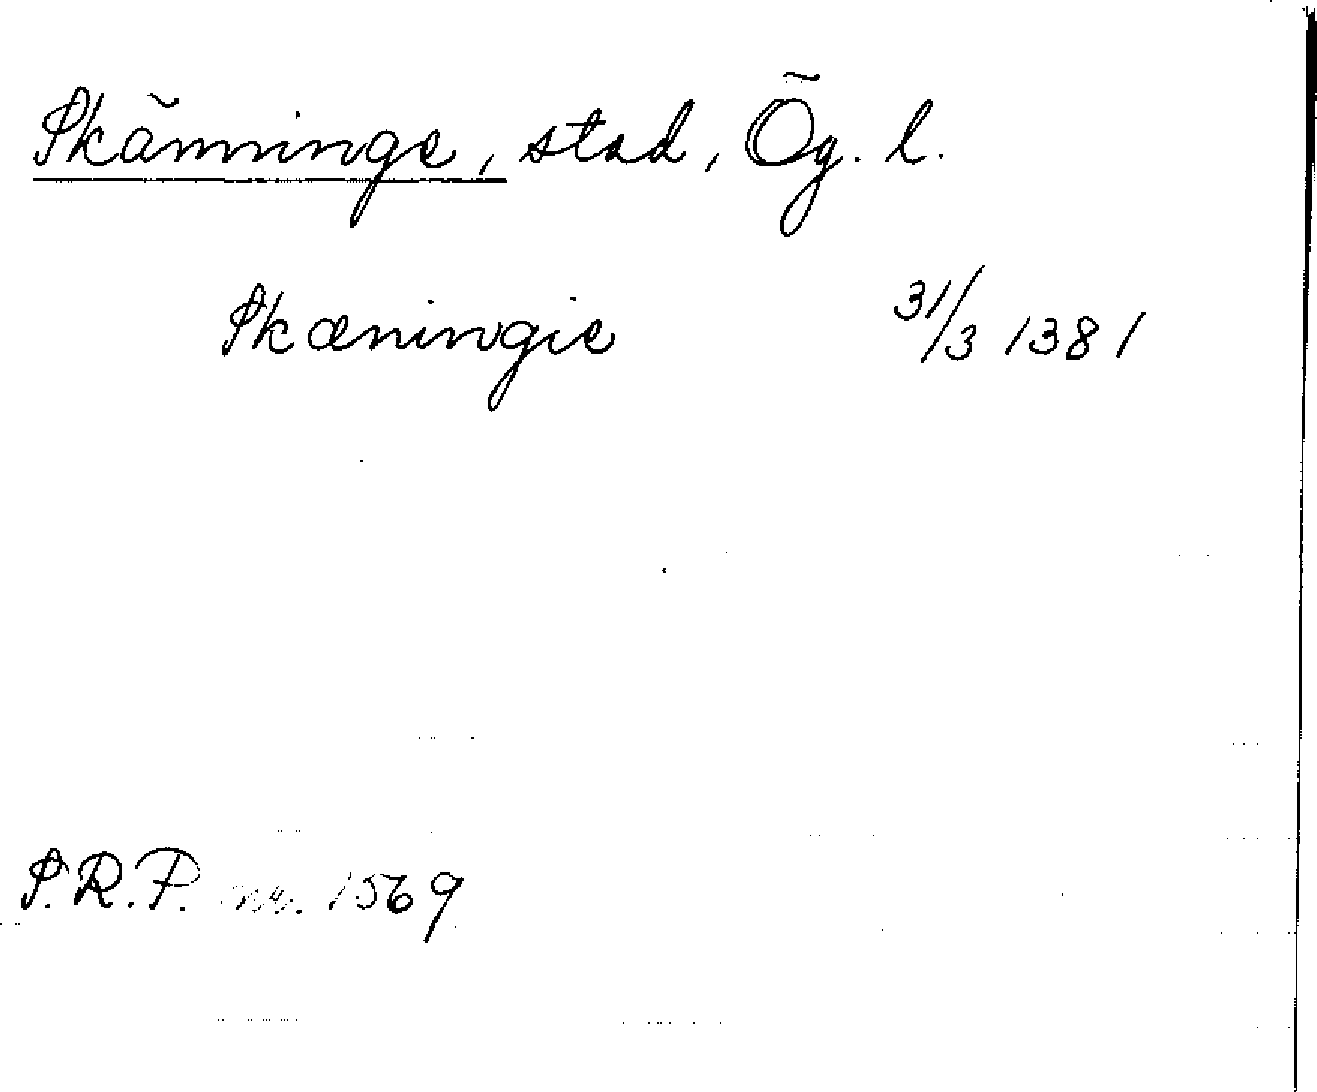 Skänninge, stad, Ög. l.
Skæningie 31/3 1381
S.R.P. nr. 1569